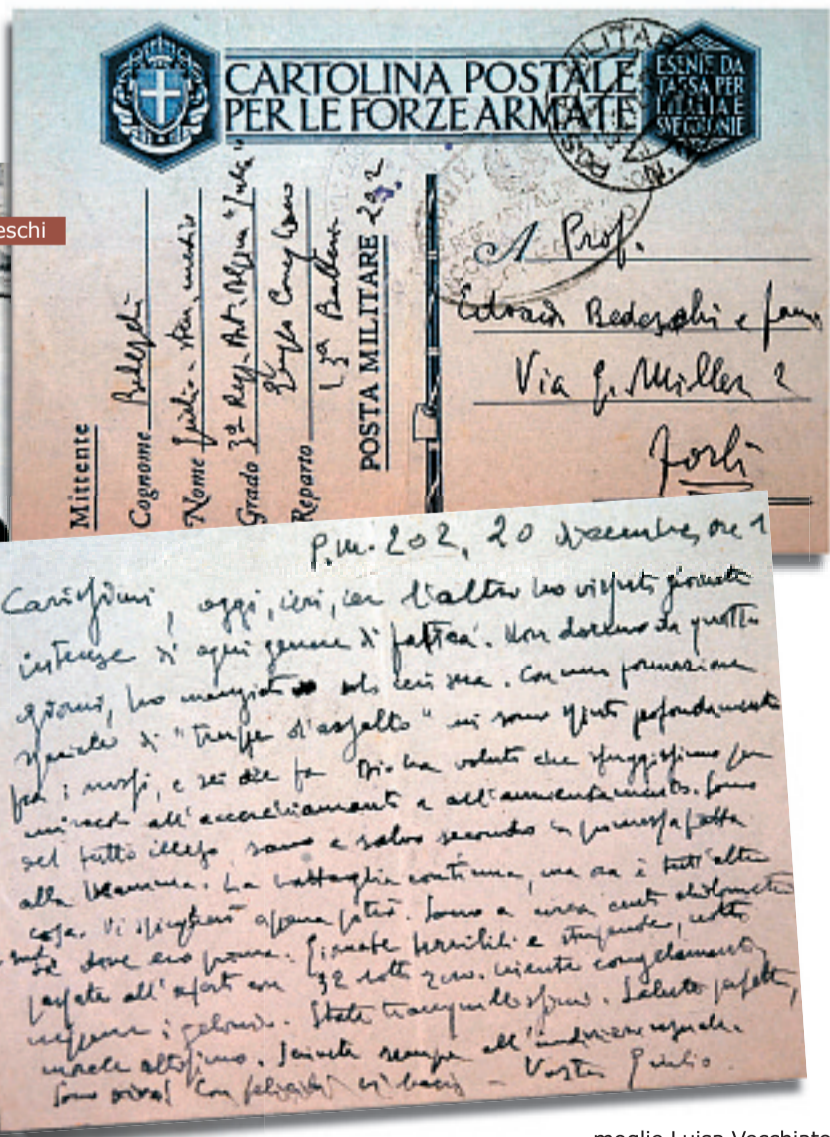 eschi
CARTOLINA POSTALE
PER LE FORZE ARMATE
ESENTE DA
TASSA PER
L'ITALIA E
Mittente
Cognome Bedeschi
Nome Giulio - sten. medico
Grado 3º Regg. Art. Alpina "Julia"
Reparto Gruppo Conegliano
13ª Batteria
POSTA MILITARE 202
A Prof.
Edoardo Bedeschi e fam
Via G. Miller 2
Forlì
P.M. 202, 20 dicembre, ore 1
Carissimi, oggi, ieri, ier l'altro ho vissuto giornate
intense di ogni genere di fatica. Non dormo da quattro
giorni, ho mangiato solo ieri sera. Con una formazione
speciale di "truppe d'assalto" mi sono spinto profondamente
fra i russi, e sei ore fa Dio ha voluto che sfuggissimo per
miracolo all'accerchiamento e all'annientamento. Sono
del tutto illeso, sano e salvo secondo la promessa fatta
alla Mamma. La battaglia continua, ma ora è tutt'altra
cosa. Vi spiegherò appena potrò. Sono a circa cento chilometri
a sud di dove ero prima. Giornate terribili e stupende, notti
passate all'aperto con 32 sotto zero. niente congelamenti,
neppure i geloni. State tranquillissimi. Salute perfetta,
morale altissimo. Scrivete sempre all'indirizzo usuale.
Sono vivo! Con felicità vi bacio - Vostro Giulio.
moglie Luisa Vecchiato